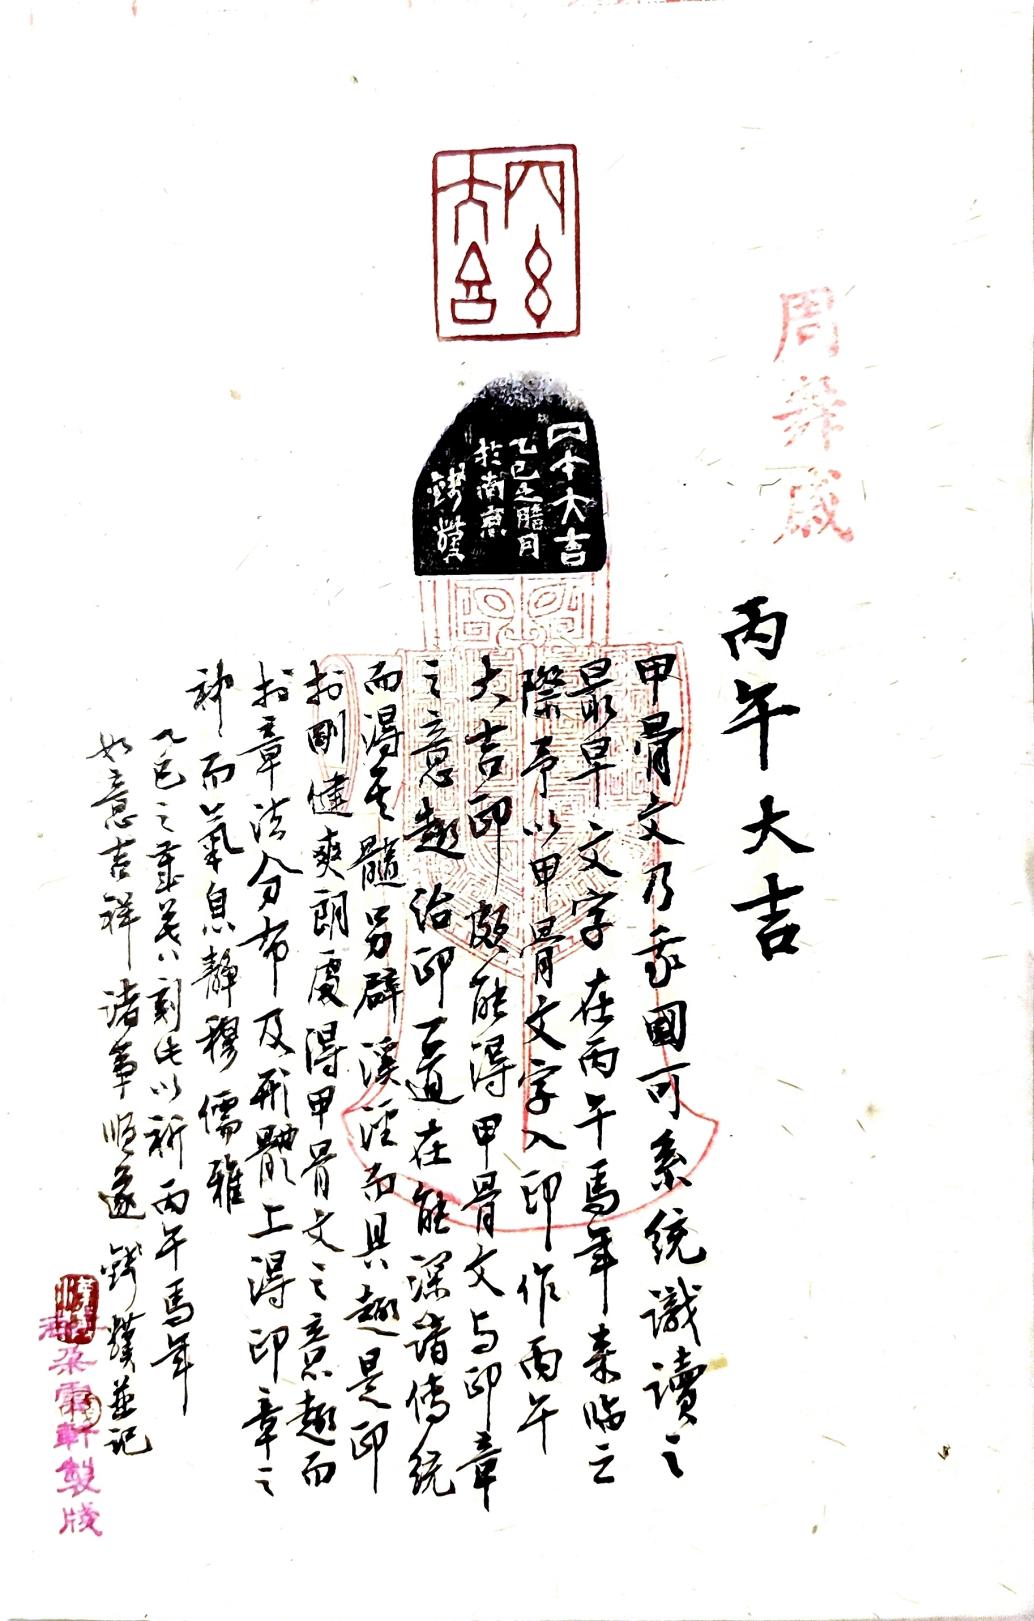 丙午大吉
周彝
丙午大吉
乙巳之腊月
於南京
丙午大吉
甲骨文乃我國可系統識讀之
最早文字在丙午馬年來臨之
際予以甲骨文字入印作丙午
大吉印頗能得甲骨文与印章
之意趣治印一道在能深諳傳統
而得其髓另辟溪徑而具趣是印
於剛健爽朗處得甲骨文之意趣而
於章法分布及形體上得印章之
神而氣息靜穆儒雅
乙巳之刻此以祈丙午馬年
如意吉祥諸事順遂並記
朵雲軒製牋